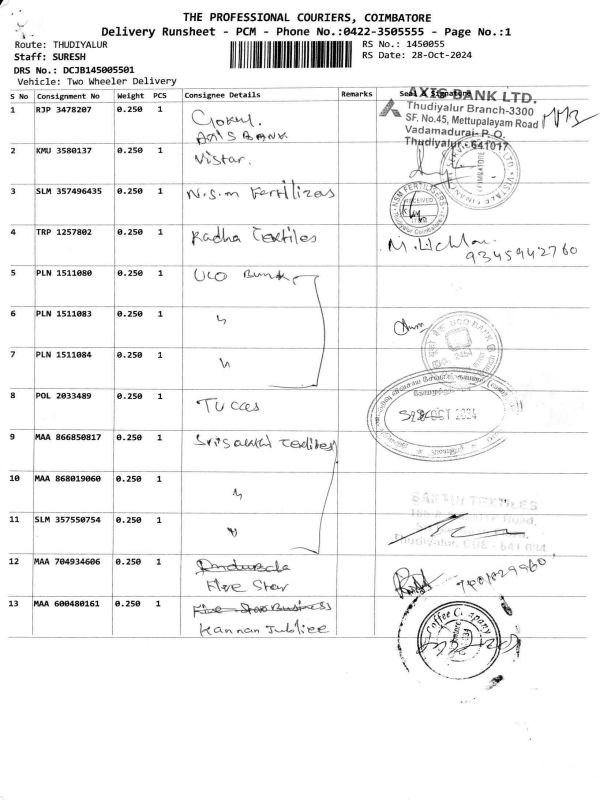 THE PROFESSIONAL COURIERS, COIMBATORE
Delivery Runsheet - PCM - Phone No.:0422-3505555 - Page No.:1
Route: THUDIYALUR
RS No.: 1450055
Staff: SURESH
RS Date: 28-Oct-2024
DRS No.: DCJB145005501
Vehicle: Two Wheeler Delivery
S No Consignment No Weight PCS Consignee Details Remarks Seal & Signature
1 RJP 3478207 0.250 1 Gokul.
AXIS BANK
AXIS BANK LTD.
Thudiyalur Branch-3300
SF. No.45, Mettupalayam Road
Vadamadurai- P. O.
Thudiyalur- 641017
2 KMU 3580137 0.250 1 Vistar.
3 SLM 357496435 0.250 1 N.S.m Fertilizes
NSM FERTILIZERS
RECEIVED
4 TRP 1257802 0.250 1 Radha Textiles
9345942760
5 PLN 1511080 0.250 1 UCO Bank
6 PLN 1511083 0.250 1 "
UCO BANK
7 PLN 1511084 0.250 1 "
8 POL 2033489 0.250 1 Tucces
OCT 2024
9 MAA 866850817 0.250 1 Srisakthi Textiles
10 MAA 868019060 0.250 1 "
TEXTILES
11 SLM 357550754 0.250 1 "
Thudiyalur, CBE - 641 034
12 MAA 704934606 0.250 1
Five Star
13 MAA 600480161 0.250 1 Five Star Business
Kannan Jubliee
Coffee Company